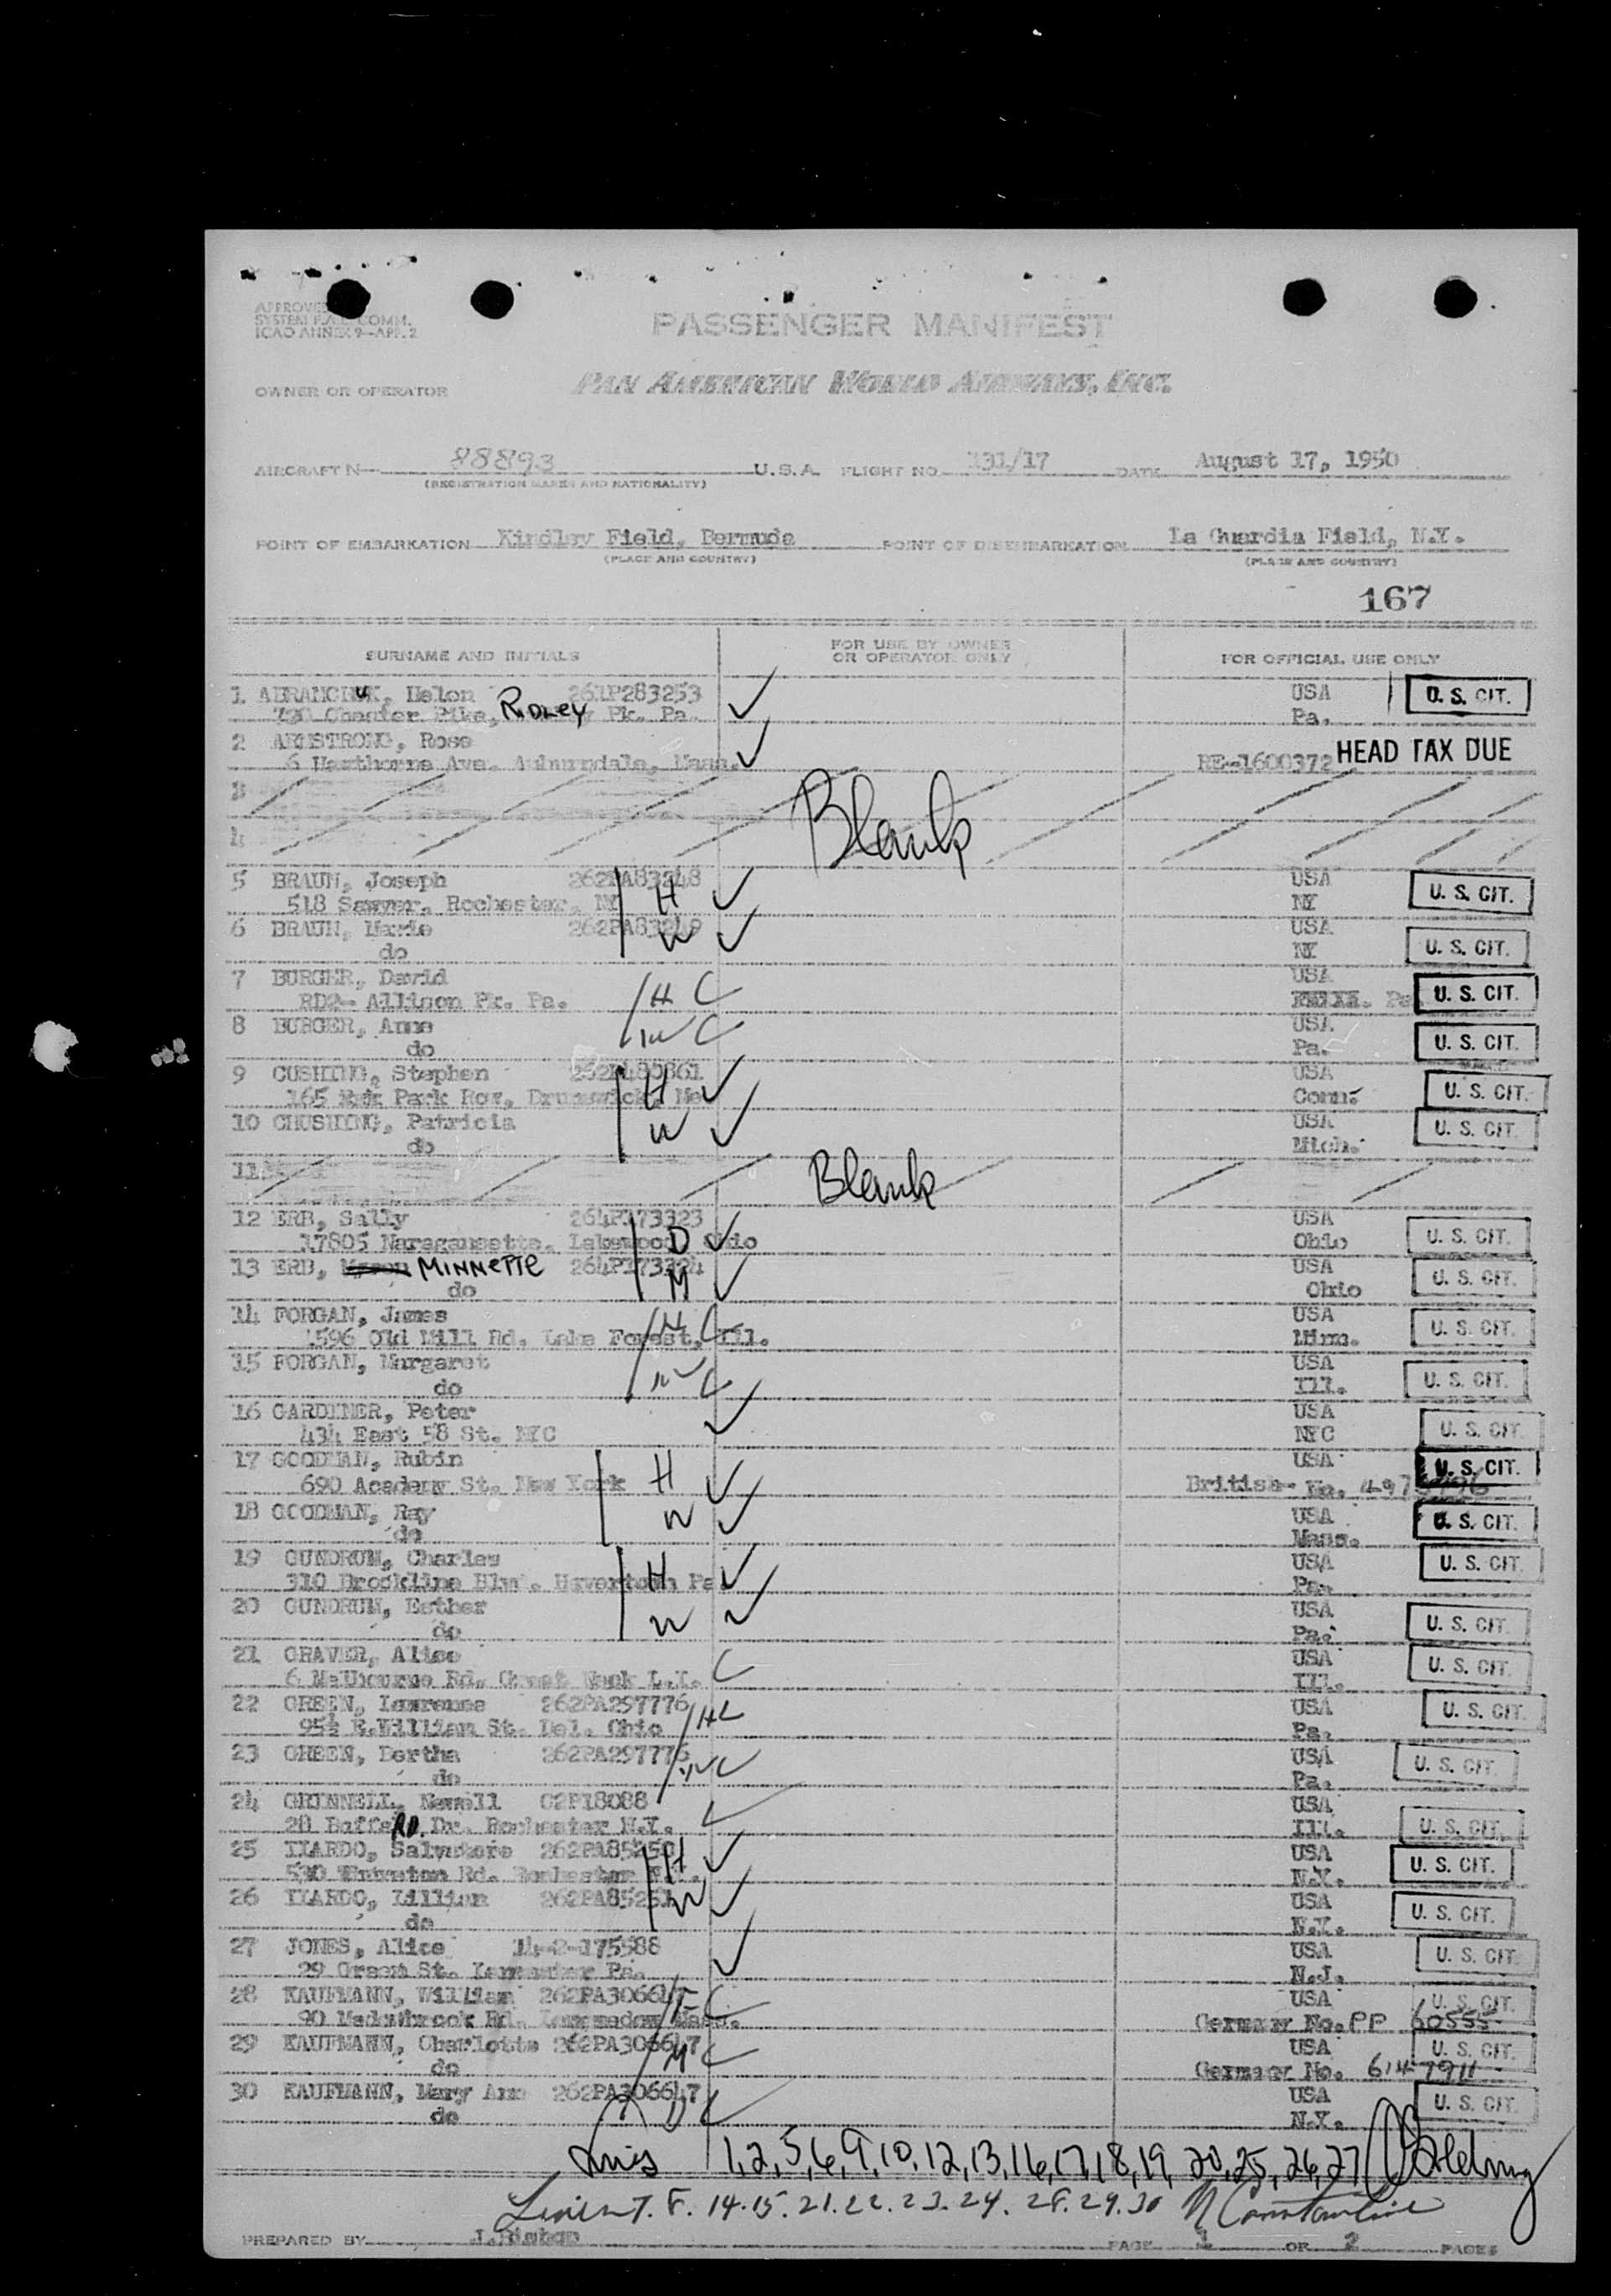 APPROVED
SYSTEM F.A.L. COMM.
ICAO ANNEX 9—APP. 2
PASSENGER MANIFEST
OWNER OR OPERATOR PAN AMERICAN WORLD AIRWAYS, INC.
AIRCRAFT N— 88893 U.S.A. FLIGHT NO. 131/17 DATE August 17, 1950
(REGISTRATION MARKS AND NATIONALITY)
POINT OF EMBARKATION Kindley Field, Bermuda POINT OF DISEMBARKATION La Guardia Field, N.Y.
(PLACE AND COUNTRY) (PLACE AND COUNTRY)
167
SURNAME AND INITIALS FOR USE BY OWNER OR OPERATOR ONLY FOR OFFICIAL USE ONLY
1. Helen 261P283253 USA U. S. CIT.
Chester Pike, RIDLEY Pk. Pa. Pa.
2 ARMSTRONG, Rose
6 Hawthorne Ave. Auburndale, Mass. RE-1600372 HEAD TAX DUE
3
4 Blank
5 BRAUN, Joseph 262PA83248 USA U. S. CIT.
518 Sawyer, Rochester, NY H NY
6 BRAUN, Marie 262PA83249 W USA U. S. CIT.
do NY
7 BURGER, David USA U. S. CIT.
RD2- Allison Pk. Pa. H C Pa
8 BURGER, Anne USA U. S. CIT.
do W C Pa.
9 CUSHING, Stephen USA U. S. CIT.
165 Park Row, Brunswick, Me H Conn.
10 CHUSHING, Patricia W USA U. S. CIT.
do Mich.
11 Blank
12 ERB, Sally 264P173323 USA U. S. CIT.
17805 Naragansette, Lakewood, Ohio D Ohio
13 ERB, MINNETTE 264P173324 USA U. S. CIT.
do M Ohio
14 FORGAN, James USA U. S. CIT.
1596 Old Mill Rd. Lake Forest, Ill. H C Minn.
15 FORGAN, Margaret USA U. S. CIT.
do W C Ill.
16 GARDINER, Peter USA U. S. CIT.
434 East 58 St. NYC NYC
17 GOODMAN, Rubin USA U. S. CIT.
690 Academy St. New York H British- No.
18 GOODMAN, Ray W USA U. S. CIT.
do Mass.
19 GUNDRUM, Charles USA U. S. CIT.
310 Brookline Blvd. Havertown Pa H Pa.
20 GUNDRUM, Esther USA U. S. CIT.
do W Pa.
21 GRAVER, Alice USA U. S. CIT.
6 Melbourne Rd. Great Neck L.I. C Ill.
22 GREEN, Lawrence 262PA297776 H C USA U. S. CIT.
95½ E.William St. Del. Ohio Pa.
23 GREEN, Bertha 262PA297776 W C USA U. S. CIT.
do Pa.
24 GRINNELL, Newell 02P18088 USA U. S. CIT.
28 RD. Dr. Rochester N.Y. Ill.
25 ILARDO, Salvatore 262PA85250 H USA U. S. CIT.
530 Thurston Rd. Rochester N.Y. N.Y.
26 ILARDO, Lillian 262PA85251 W USA U. S. CIT.
do N.Y.
27 JONES, Alice 14-2-175588 USA U. S. CIT.
29 Green St. Lancaster Pa. N.J.
28 KAUFMANN, William 262PA306647 F C USA U. S. CIT.
90 Meadowbrook Rd. Longmeadow Mass. German No. PP 60555
29 KAUFMANN, Charlotte 262PA306647 M C USA U. S. CIT.
do German No.
30 KAUFMANN, Mary Ann 262PA306647 USA U. S. CIT.
do D C N.Y.
1,2,5,6,9,10,12,13,16,17,18,19,20,25,26,27
14.15.21.22.23.24.28.29.30 N Constantine
PREPARED BY J.Bishop PAGE 1 OR 2 PAGES